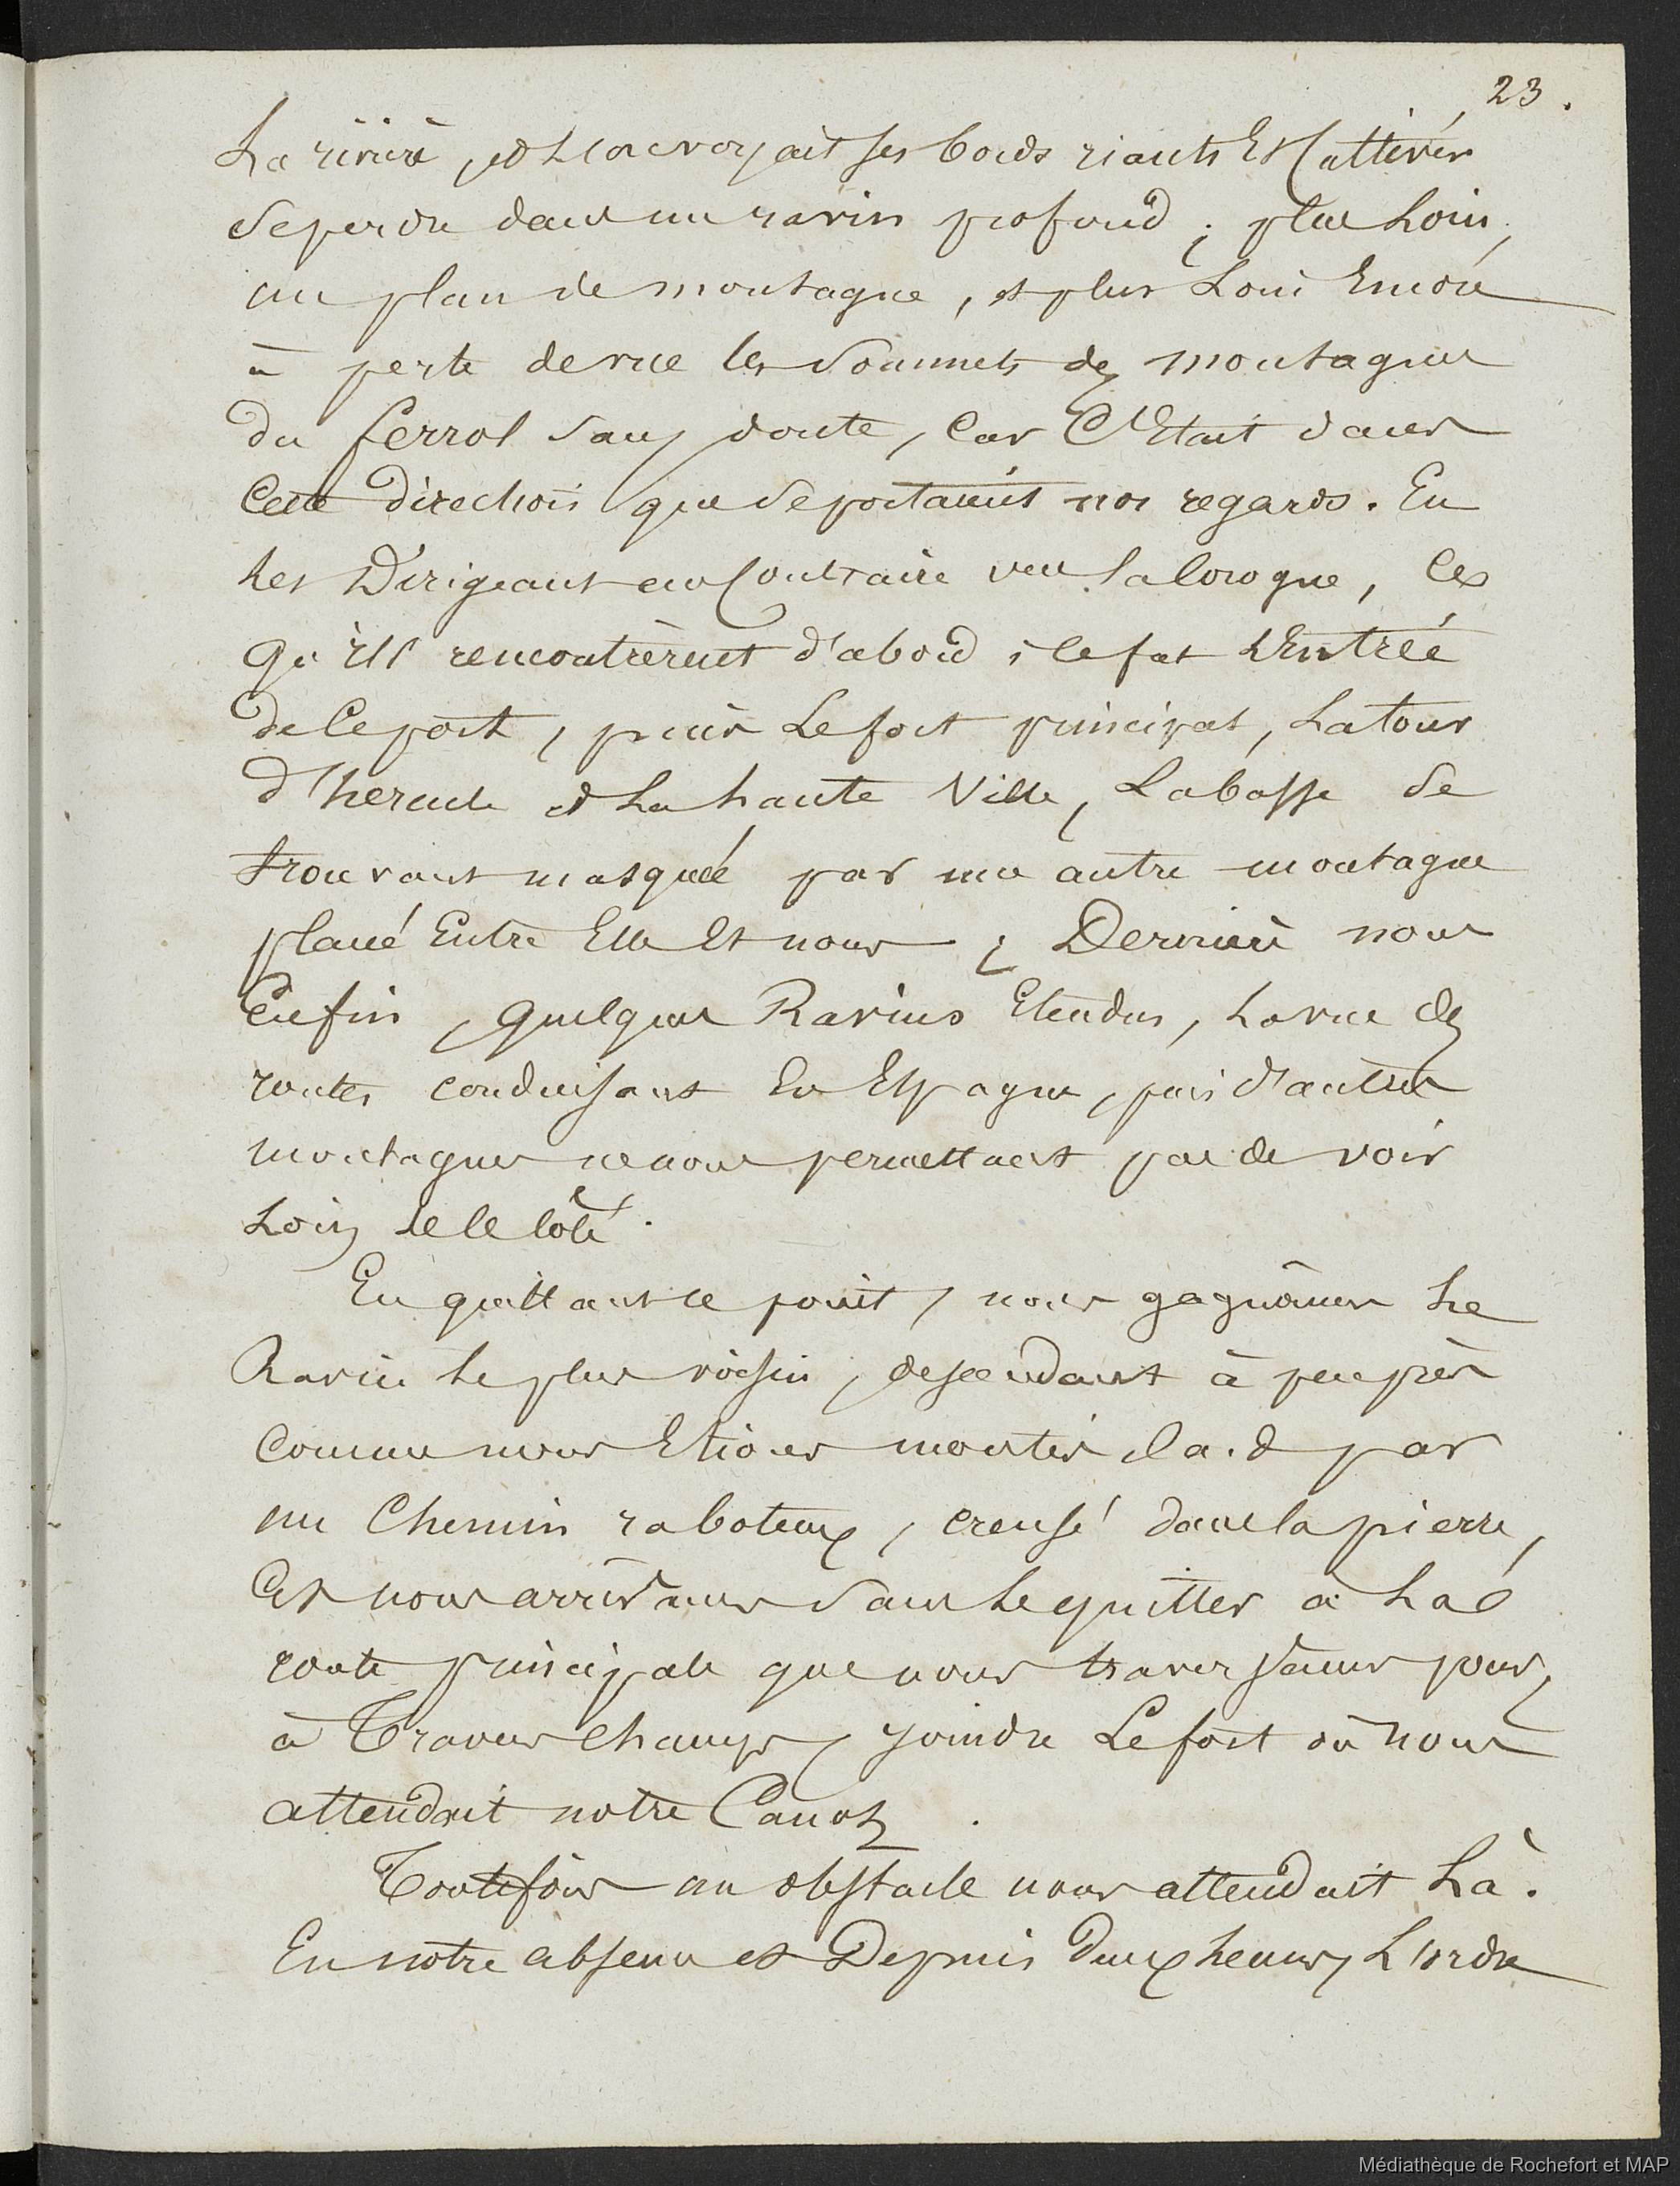 23.
La rivière, et l'on voyait ses bords riants Et cultivés
se perdre dans un ravin profond ; plus Loin,
un plan de montagne, et plus Loin Encore
à perte de vue les Sommets des montagnes
du ferrol sans doute, Car C'Etait dans
Cette Direction que se portaient nos regards. En
les Dirigeant au Contraire vers la Corogne, Ce
qu'ils rencontrèrent d'abord, ce fut L'Entrée
de Ce port, puis Le fort principal, La tour
d'hercule et La haute Ville, La basse se
trouvant masquée par une autre montagne
placé Entre Elle Et nous ; Derrière nous
Enfin, quelques Ravins Etendus, La vue des
routes conduisant En Espagne, puis d'autres
montagnes ne nous permettant pas de voir
Loin de ce Côté.
En quittant ce point, nous gagnâmes Le
Ravin le plus voisin, descendant à peu près
Comme nous Etions montés c.a.d par
un Chemin raboteux, creusé dans la pierre,
Et nous arrivâmes sans Le quitter à La
route principale que nous traversâmes pour,
à Travers champs, joindre Le fort où nous
attendait notre Canot.
Toutefois un obstacle nous attendait Là.
En notre absence et Depuis deux heures, L'ordre
Médiathèque de Rochefort et MAP